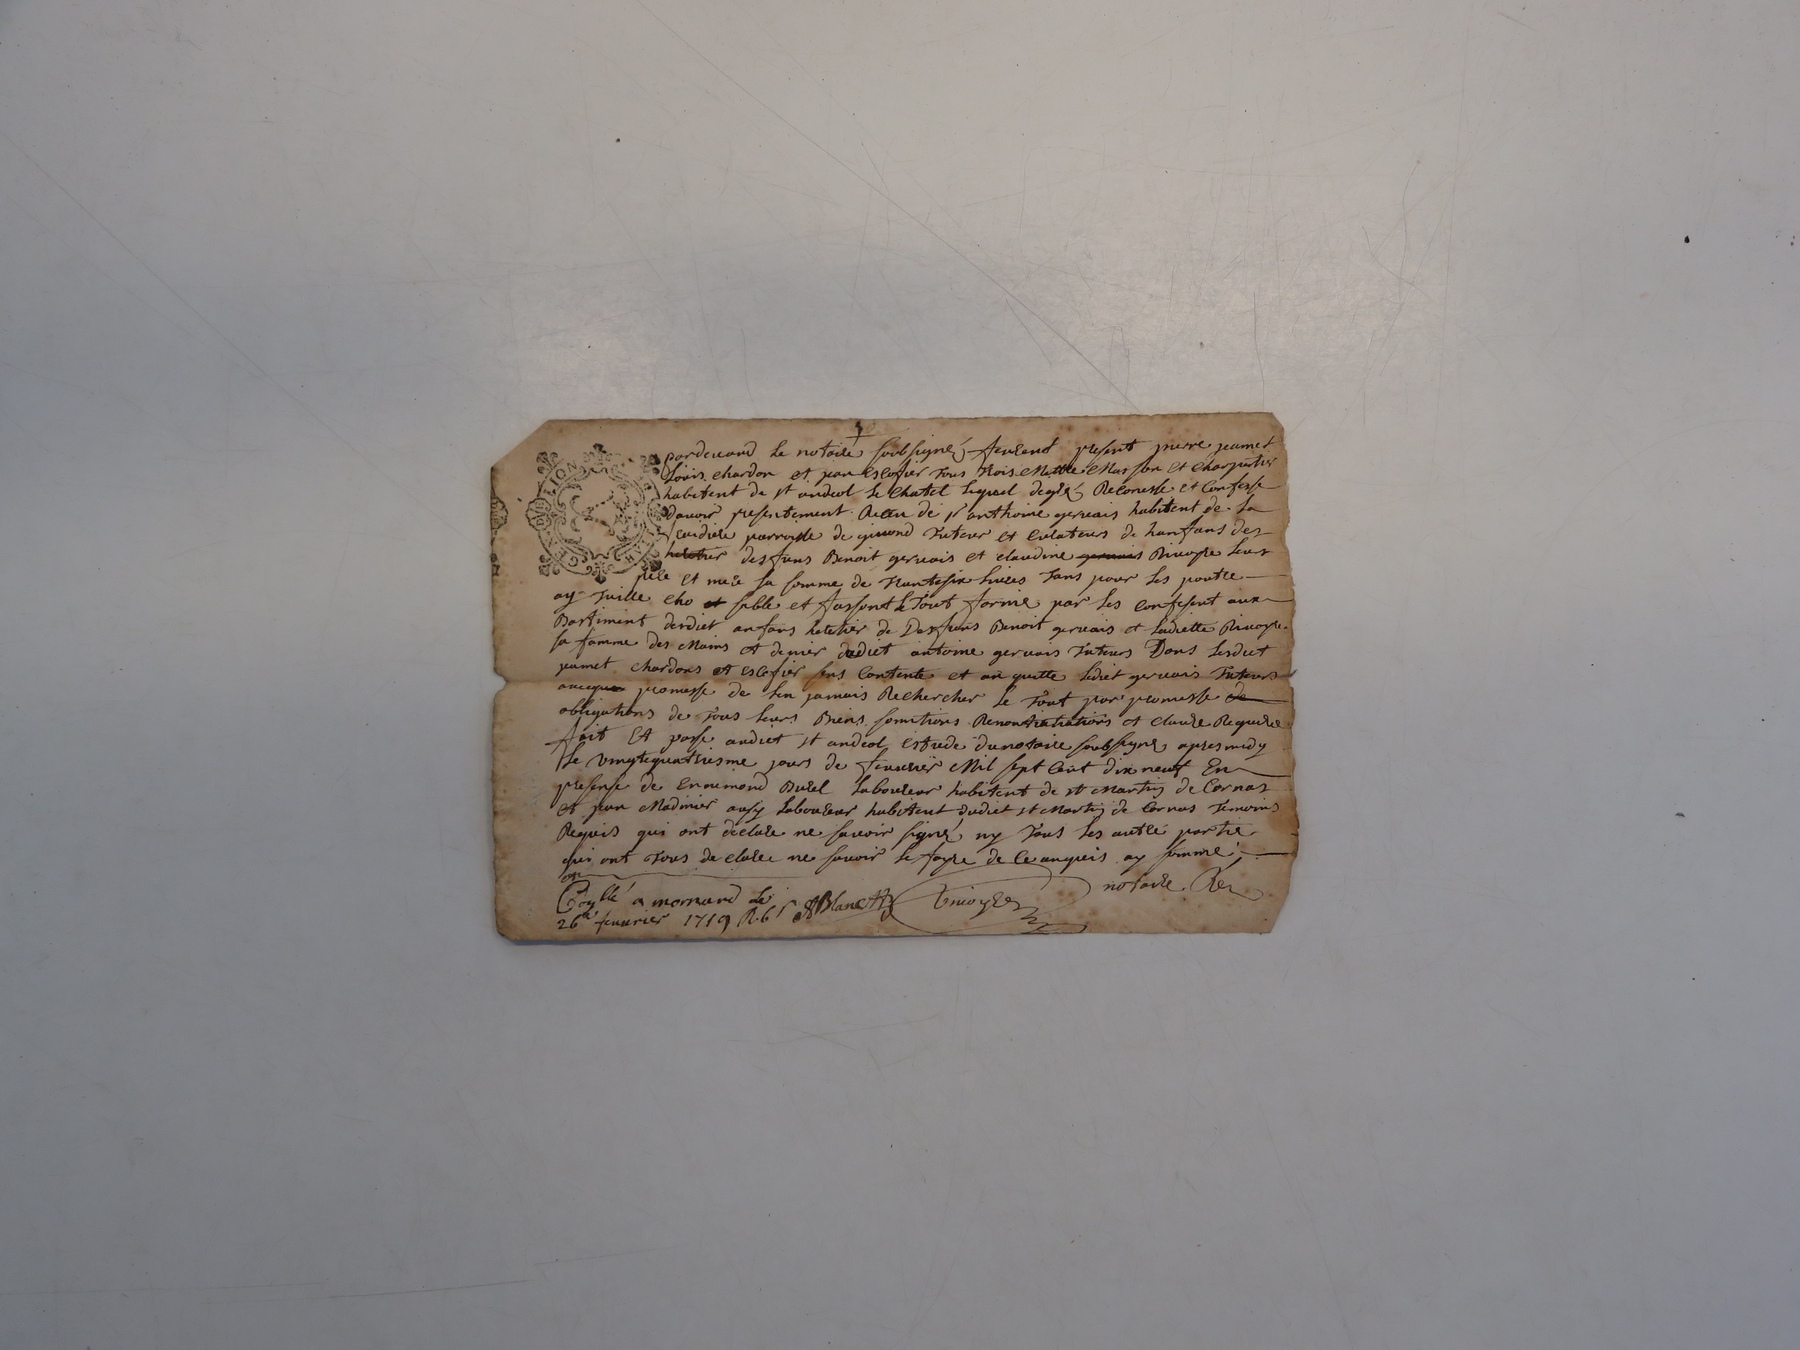 pardevand le notaire soubsigné feurent present pierre jamet
Louis chardon et jean Escofier tous trois Maitre Masson et charpentier
habitent de st andeol le chatel lequel degré Reconesse et Confesse
davoir presentement Receu de sr anthoine gervais habitent de la
parroisse de tuteur et curateurs de hanfans des
heletier desfuns Benoit gervais et claudine gervais Rivoyre leur
pere et mere la somme de trantesix livres tans pour les poutre
ay tuille cho et sable et fassont le tout fornie par les confesent aux
Bastiment desdict anfans heletier de Desfuns Benoit gervais et ladiette Rivoyre
sa famme des Mains et denier dudict antoine gervais tuteurs Dons lesdict
jamet chardons et escofier sens Contente et an quitte ledict gervais tuteurs
avecque promesse de len jamais Rechercher le tout par promesse de
obligations de tous leurs Biens somitions Renontiations et clause Requise
fait Et passe audict st andeol estude dunotaire soubsigne apres midy
le vingtequatriesme jours de feuvrier Mil sept Cent dix neuf En
presense de Ennemond Burel laboureur habitent de st Martin de Cornas
et jean Madinier ausy laboureur habitent dudict st Martin de Cornas temoins
Requis qui ont declare ne savoir signé ny tous les autre partie
qui ont tous declare ne savoir le fayre de ce anquis ay sommé
Conllé a mornand le
26e feuvrier 1719 R. 6s Blanc
notaire Rer
LION